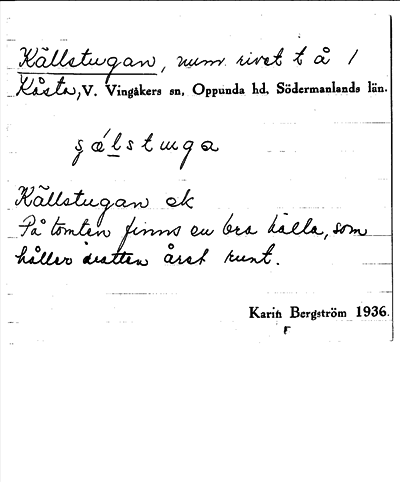 Källstugan, num. rivet t å 1
Kåsta, V. Vingåkers sn, Oppunda hd, Södermanlands län.
Källstugan ek
På tomten finns en bra källa, som
håller vatten året runt.
Karin Bergström 1936.